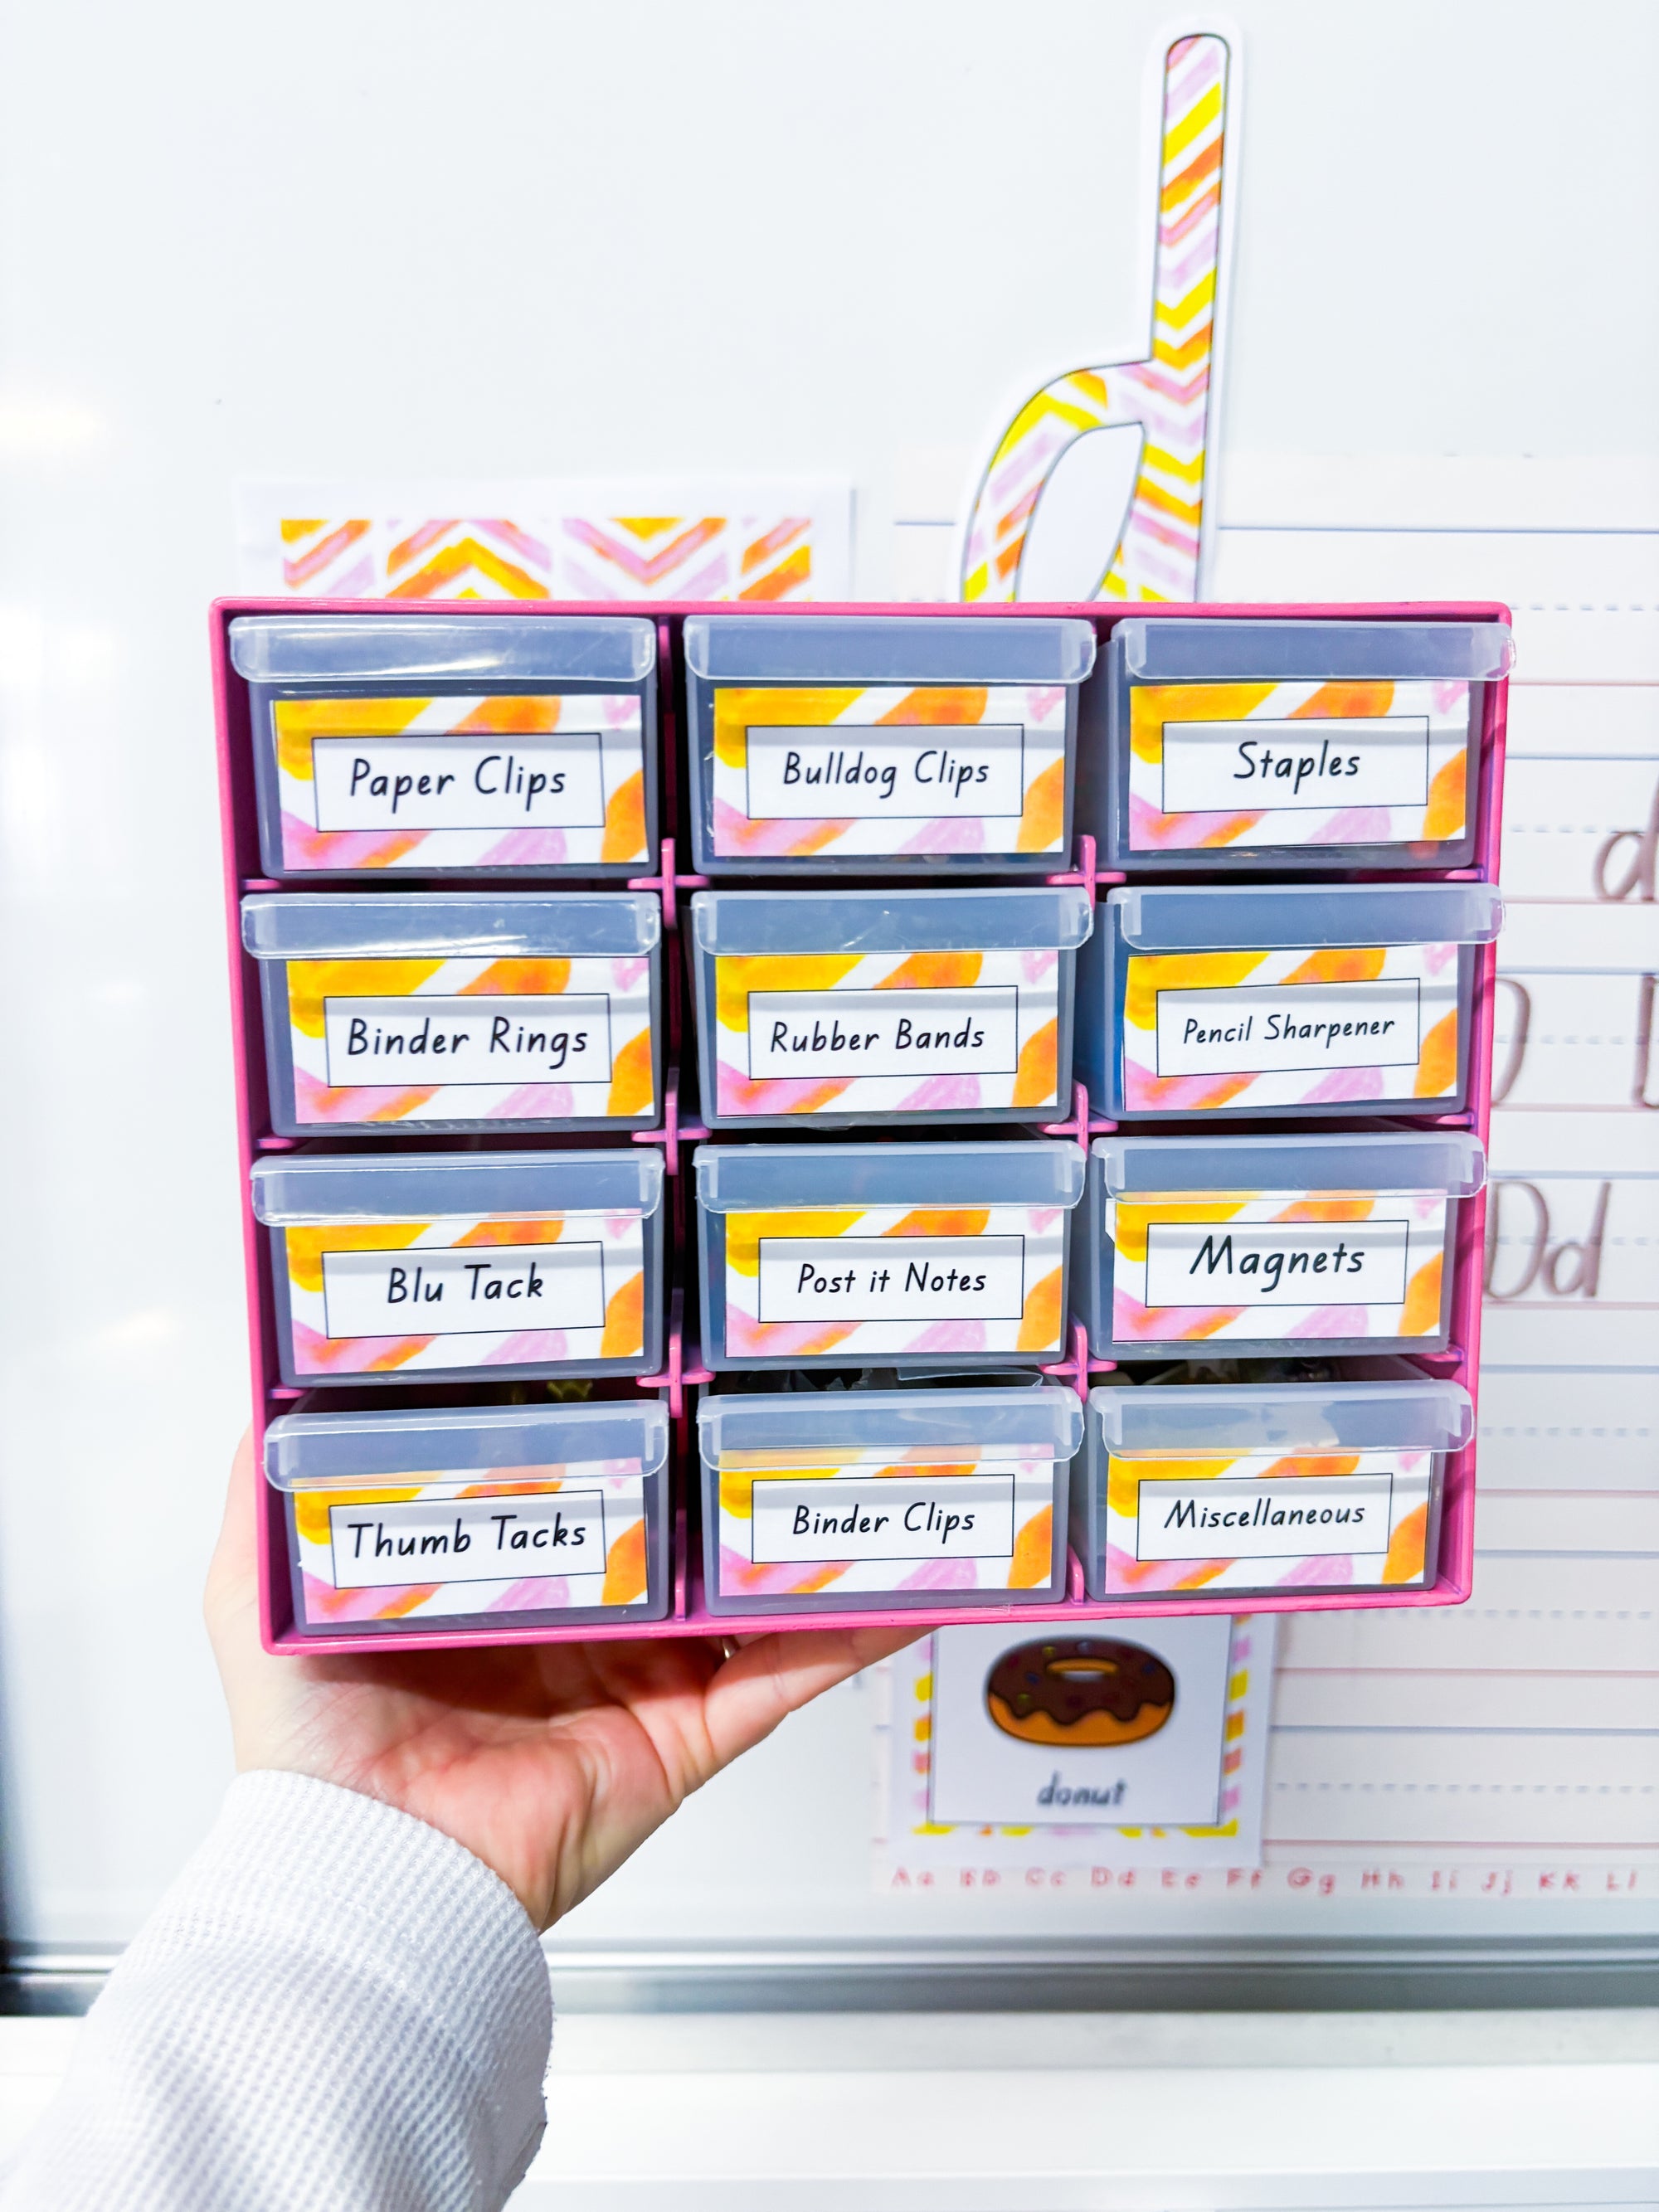 d
Paper Clips
Bulldog Clips
Staples
Binder Rings
Rubber Bands
Pencil Sharpener
Blu Tack
Post it Notes
Magnets
Dd
Thumb Tacks
Binder Clips
Miscellaneous
donut
Aa Bb Cc Dd Ee Ff Gg Hh Ii Jj Kk Ll